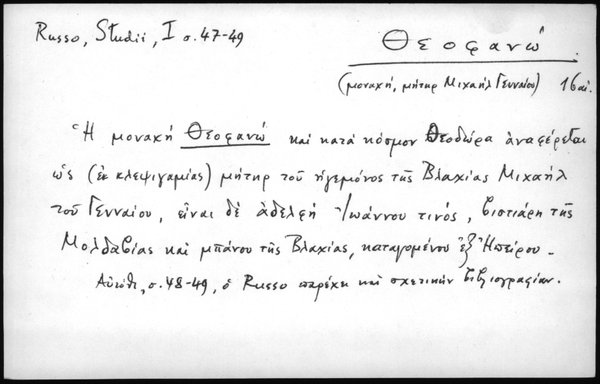 Russo, Studii, I σ. 47-49
Θεοφανώ
(μοναχή, μήτηρ Μιχαήλ Γενναίου) 16 αἰ.
Ἡ μοναχή Θεοφανώ καί κατά κόσμον Θεοδώρα ἀναφέρεται
ὡς (ἐκ κλεψιγαμίας) μήτηρ τοῦ ἡγεμόνος τῆς Βλαχίας Μιχαήλ
τοῦ Γενναίου, εἶναι δέ ἀδελφή Ἰωάννου τινός, βιστιάρη τῆς
Μολδαβίας καί μπάνου τῆς Βλαχίας, καταγομένου ἐξ Ἠπείρου.
Αὐτόθι, σ. 48-49, ὁ Russo παρέχει καί σχετικήν βιβλιογραφίαν.